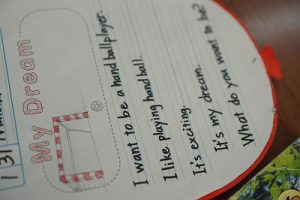 My Dream
I want to be a handballplayer.
I like playing handball.
It's exciting.
It's my dream.
What do you want to be?